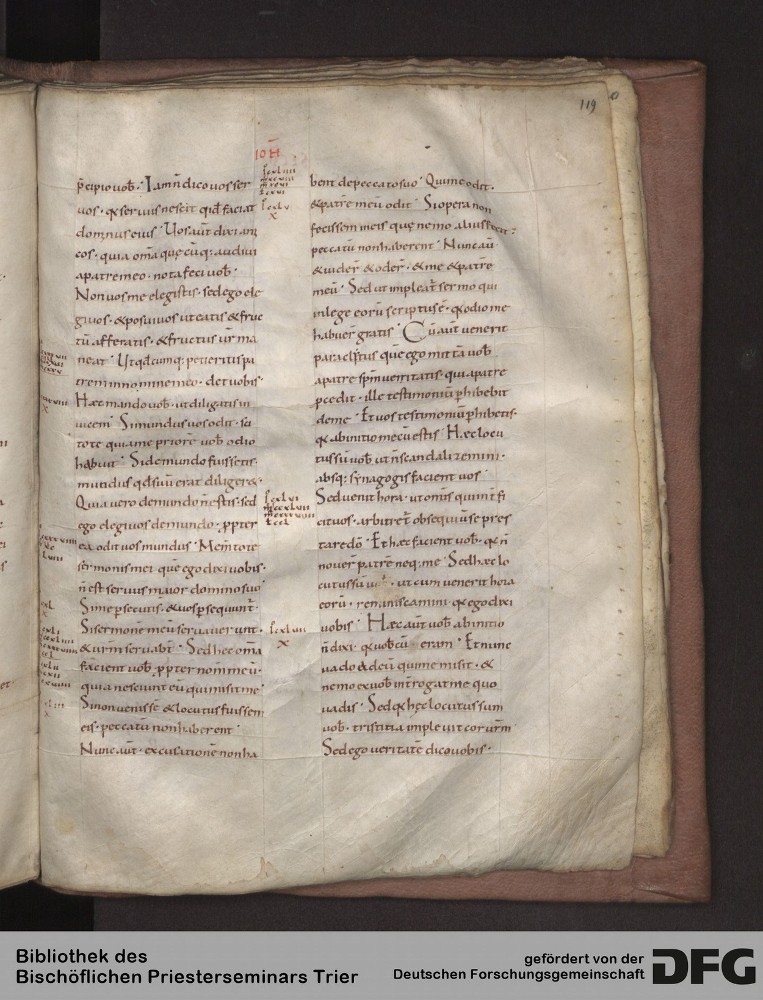 119
IOH
p̄cipio uob̄. Iam n̄ dico uos ser
uos. q̄ seruus nescit qd̄ faciat
dominus eius. Uos aūt dixi ami
cos. quia om̄a quę cūq; audiui
a patre meo. nota feci uob̄.
Non uos me elegistis. sed ego ele
gi uos. & posui uos ut eatis & fruc
tū afferatis. & fructus ur̄ ma
neat. Ut qd̄cumq; petieritis pa
trem in nomine meo. det uobis.
Haec mando uob̄. ut diligatis in
uicem. Si mundus uos odit. sci
tote quia me priorē uob̄ odio
habuit. Si de mundo fuissetis.
mundus qd̄ suū erat diligeret.
Quia uero de mundo n̄ estis. sed
ego elegi uos de mundo. ppter
ea odit uos mundus. Mem̄tote
sermonis mei. quē ego dixi uobis.
n̄ est seruus maior domino suo.
Si me p̄secuti s̄. & uos p̄sequunt̄.
Si sermonē meū seruauer̄unt.
& ur̄m seruab̄t. Sed hęc om̄a
facient uob̄. ppter nom̄ meū.
quia nesciunt eū qui misit me.
Si non uenissē & locutus fuissem
eis. peccatū non haberent.
Nunc aūt. excusationē non ha
bent de peccato suo. Qui me odit.
& patrē meū odit. Si opera non
fecissem in eis quę nemo alius fecit:
peccatū non haberent. Nunc aū
& uider̄ & oder̄. & me & patrē
meū. Sed ut impleat̄ sermo qui
in lege eorū scriptus ē. q̄ odio me
habuer̄ gratis. Cū aūt uenerit
paraclitus quē ego mittā uob̄
a patre sp̄m ueritatis. qui a patre
pcedit. ille testimoniū phibebit
de me. Et uos testimoniū phibetis.
q̄ ab initio mecū estis. Haec locu
tus sū uob̄ ut n̄ scandalizemini.
absq; synagogis facient uos.
Sed uenit hora. ut om̄is qui int̄fi
cit uos. arbitret̄ obsequiū se pres
tare dō. Et haec facient uob̄. q̄ n̄
nouer̄ patrē neq; me. Sed haec lo
cutus sū uob̄. ut cum uenerit hora
eorū. reminiscamini. q̄ ego dixi
uobis. Haec aūt uob̄ ab initio
n̄ dixi. q̄ uob̄cū eram. Et nunc
uado ad eū qui me misit. &
nemo ex uob̄ int̄rogat me quo
uadis. Sed q̄ hęc locutus sum
uob̄. tristitia impleuit cor ur̄m
Sed ego ueritatē dico uobis.
Bibliothek des
Bischöflichen Priesterseminars Trier
gefördert von der
Deutschen Forschungsgemeinschaft
DFG